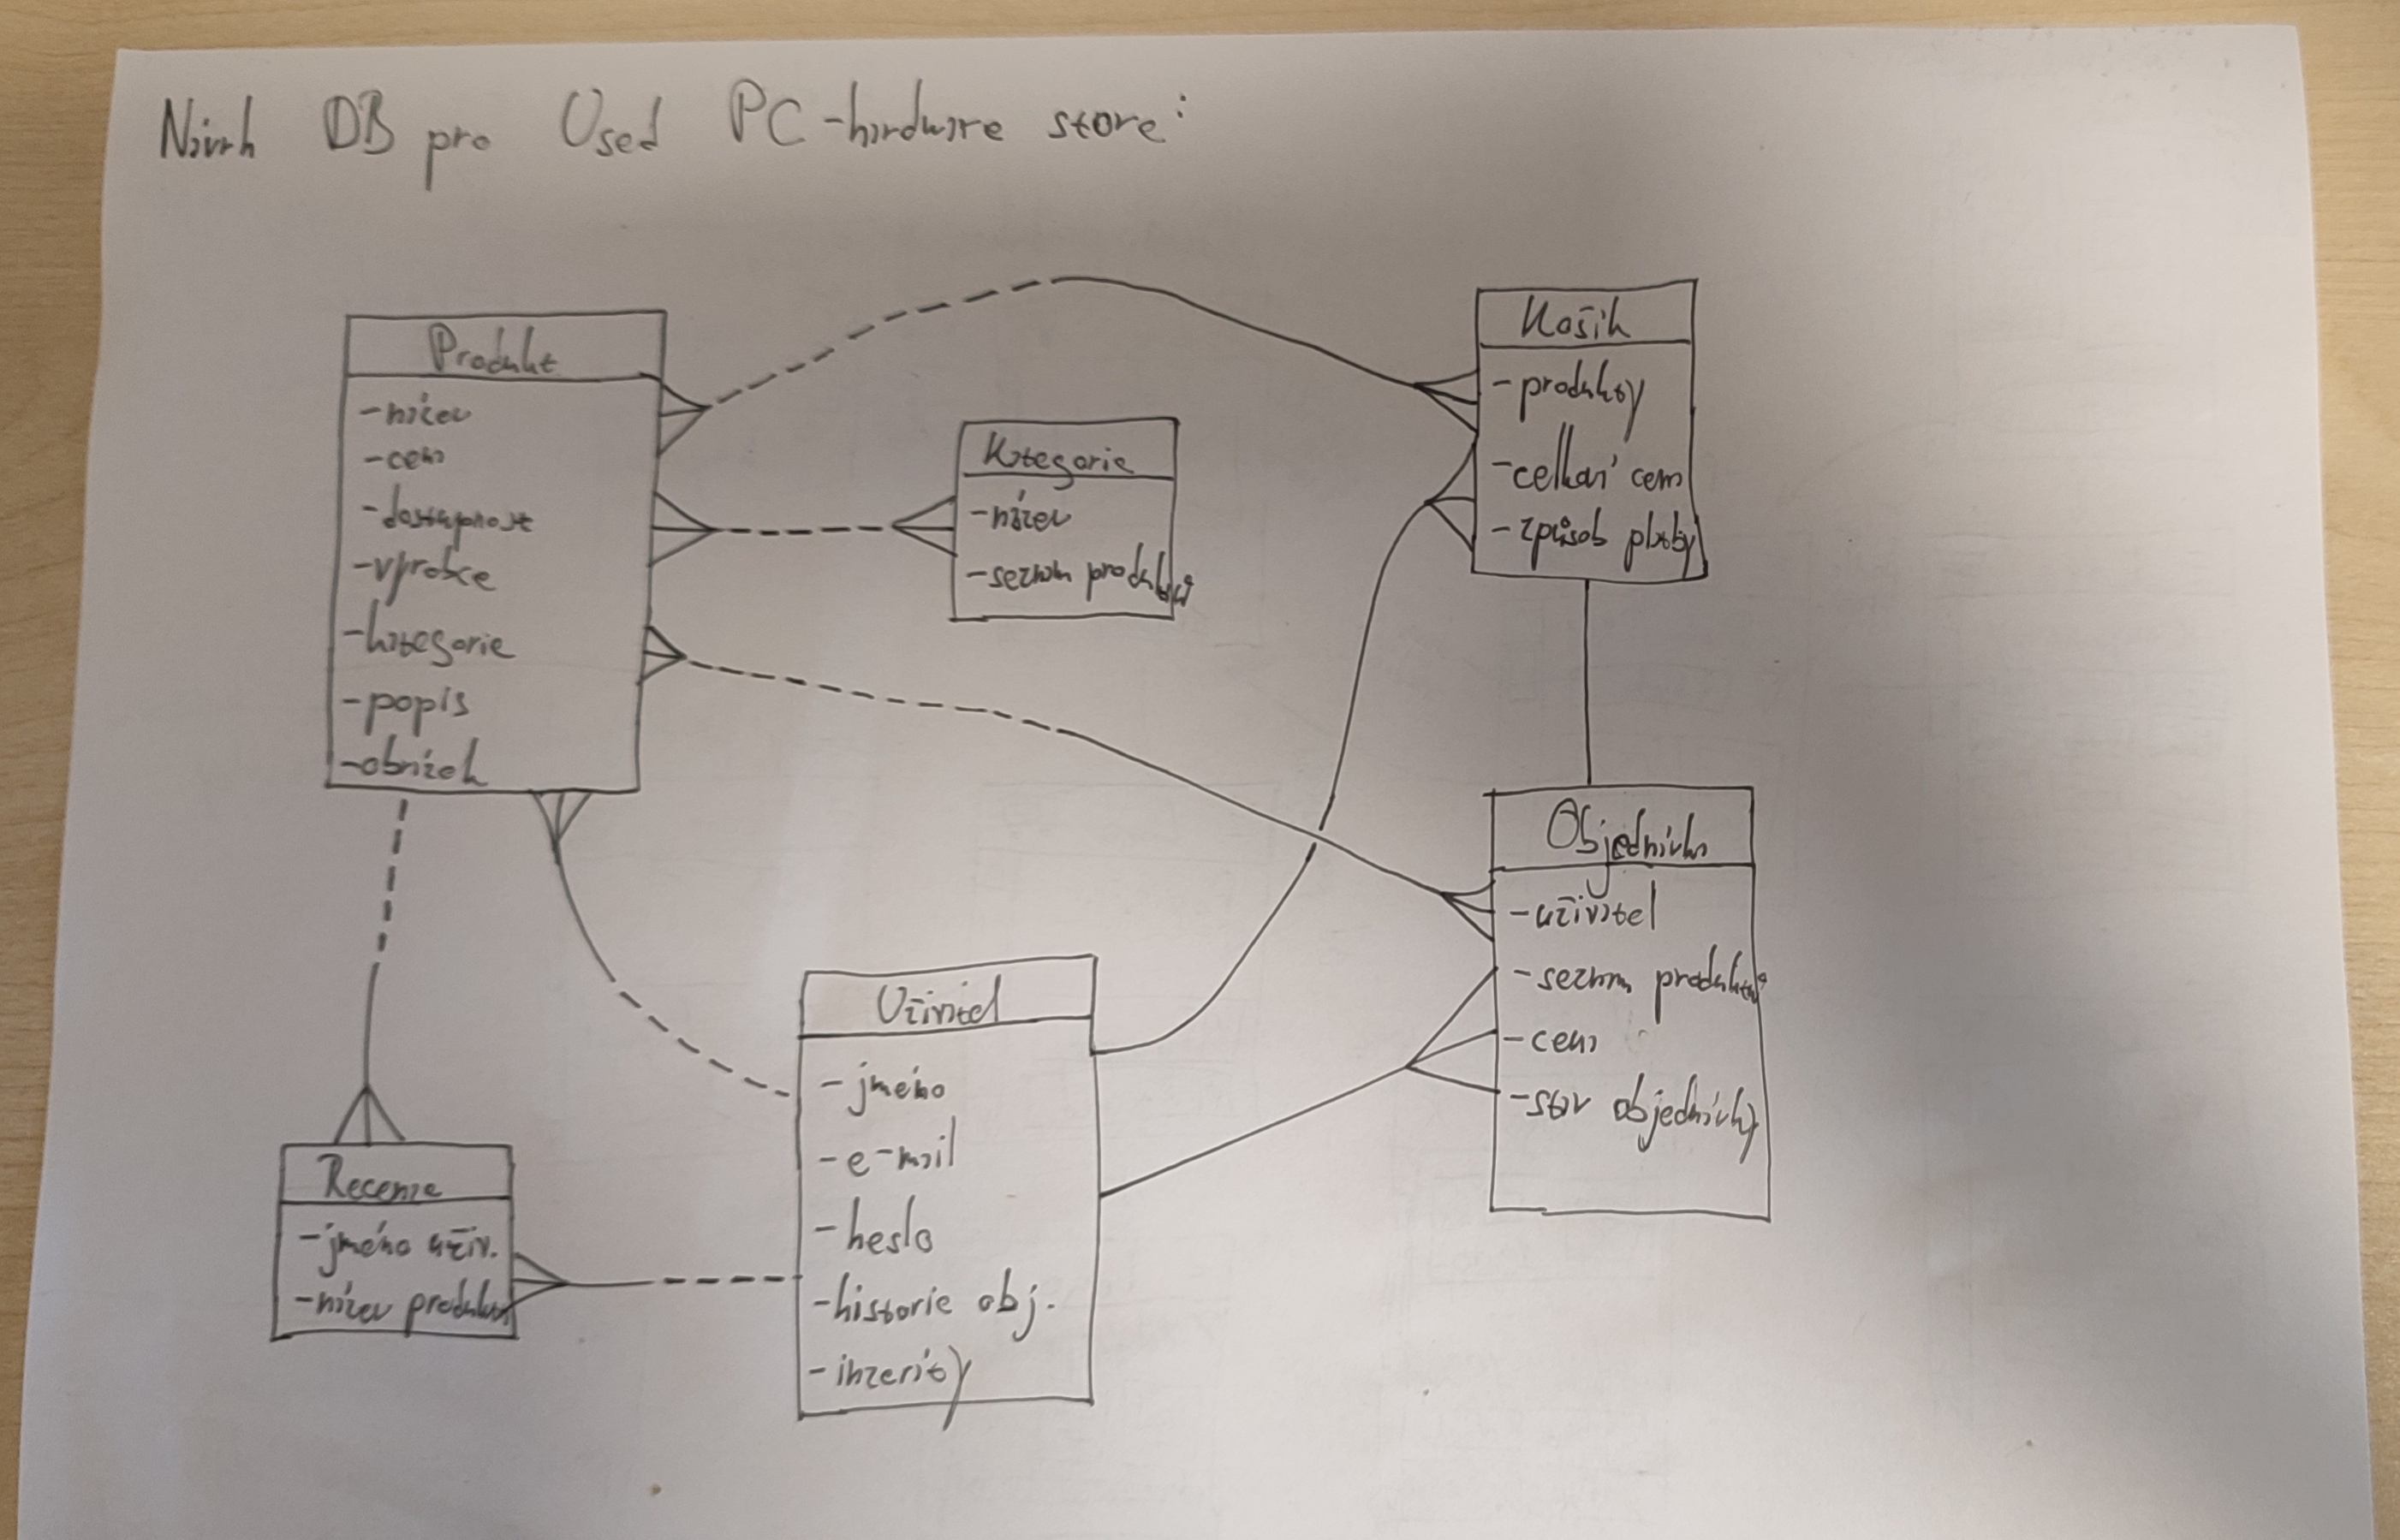 Návrh DB pro Used PC-hardware store:
Produkt
-název
-cena
-dostupnost
-výrobce
-kategorie
-popis
-obrázek
Kategorie
-název
-seznam produktů
Košík
-produkty
-celková cena
-způsob platby
Objednávka
-uživatel
-seznam produktů
-cena
-stav objednávky
Uživatel
-jméno
-e-mail
-heslo
-historie obj.
-inzeráty
Recenze
-jméno uživ.
-název produktu